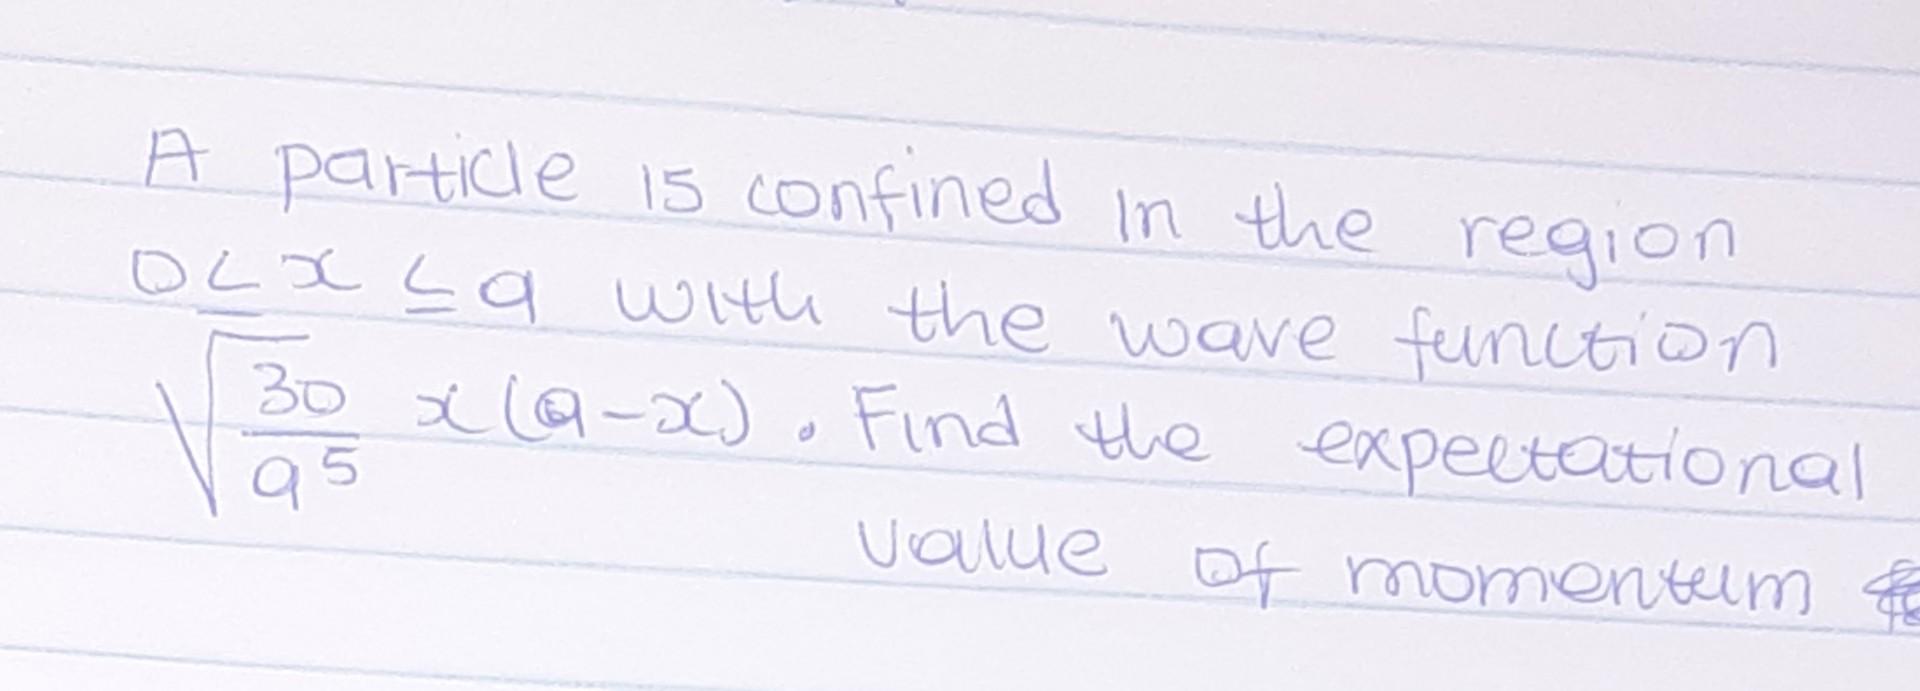 A particle is confined in the region
0 ≤ x ≤ a with the wave function
√(30/a⁵) x(a-x). Find the expectational
value of momentum